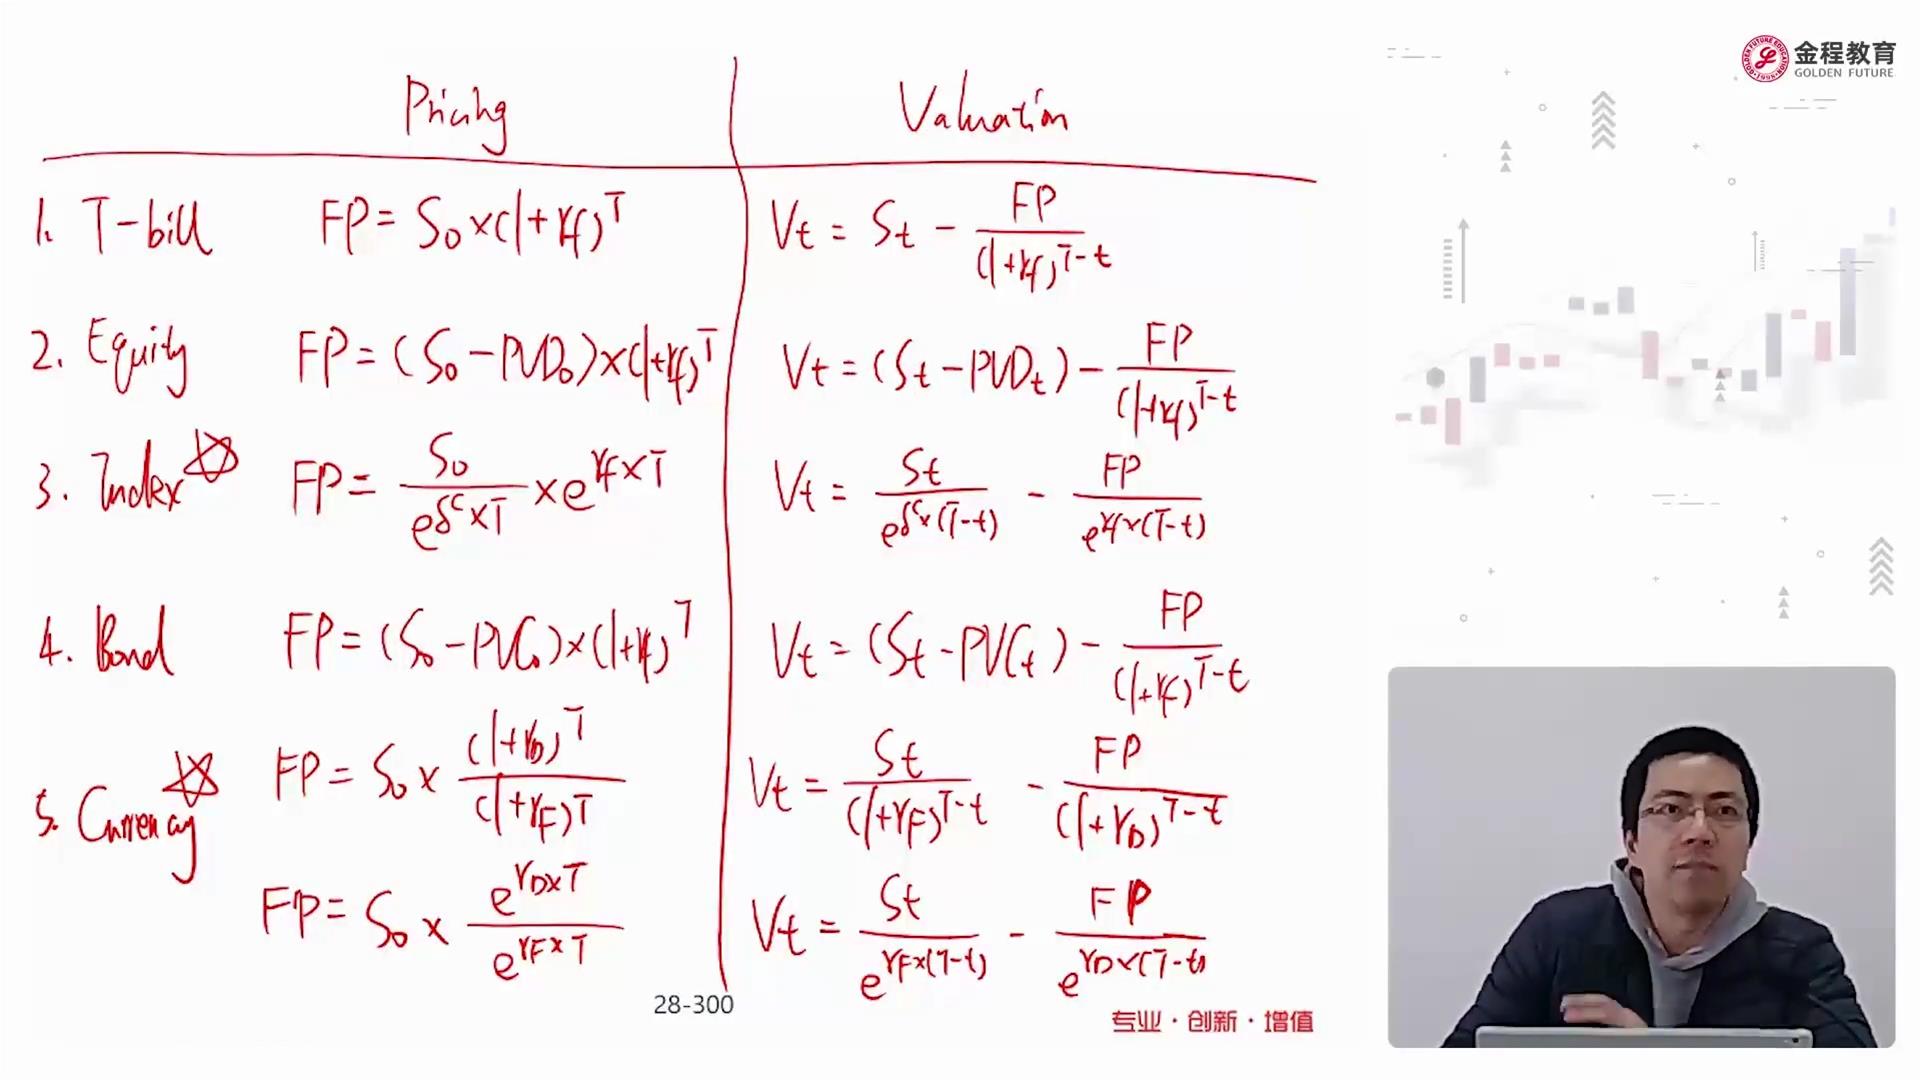 金程教育
GOLDEN FUTURE
Pricing Valuation
1. T-bill FP = S₀ × (1+rf)^T Vt = St - FP/(1+rf)^(T-t)
2. Equity FP = (S₀ - PVD₀) × (1+rf)^T Vt = (St - PVDt) - FP/(1+rf)^(T-t)
3. Index FP = S₀/e^(δ^c×T) × e^(rf×T) Vt = St/e^(δ^c×(T-t)) - FP/e^(rf×(T-t))
4. Bond FP = (S₀ - PVC₀) × (1+rf)^T Vt = (St - PVCt) - FP/(1+rf)^(T-t)
5. Currency FP = S₀ × (1+r_D)^T/(1+r_F)^T Vt = St/(1+r_F)^(T-t) - FP/(1+r_D)^(T-t)
FP = S₀ × e^(r_D×T)/e^(r_F×T) Vt = St/e^(r_F×(T-t)) - FP/e^(r_D×(T-t))
28-300
专业·创新·增值